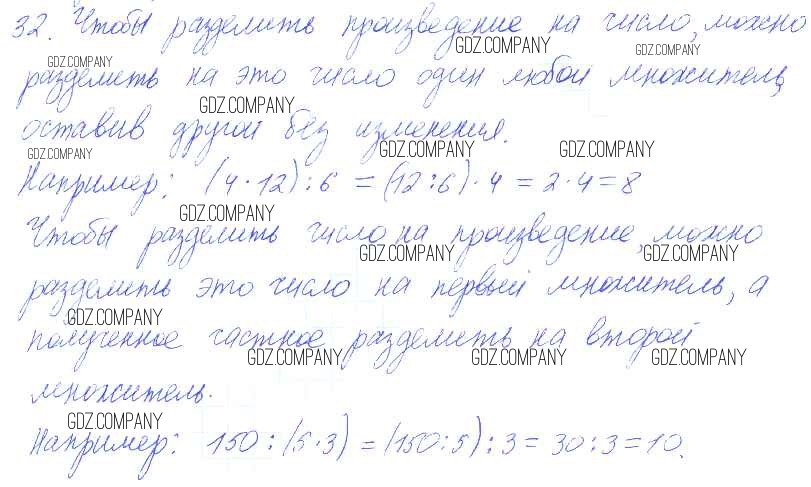 32. Чтобы разделить произведение на число, можно
GDZ.COMPANY GDZ.COMPANY
GDZ.COMPANY
разделить на это число один любой множитель,
GDZ.COMPANY
оставив другой без изменения.
GDZ.COMPANY GDZ.COMPANY GDZ.COMPANY
Например: (4·12):6 = (12:6)·4 = 2·4=8
GDZ.COMPANY
Чтобы разделить число на произведение, можно
GDZ.COMPANY GDZ.COMPANY
разделить это число на первый множитель, а
GDZ.COMPANY
полученное частное разделить на второй
GDZ.COMPANY GDZ.COMPANY GDZ.COMPANY
множитель.
GDZ.COMPANY
Например: 150:(5·3) = (150:5):3 = 30:3=10.